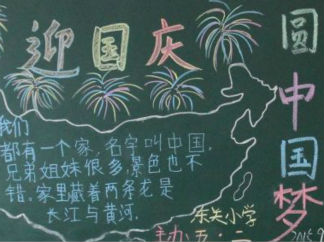 迎国庆
圆中国梦
我们
都有一个家,名字叫中国,
兄弟姐妹很多,景色也不
错,家里藏着两条龙是
长江与黄河.
东关小学
五·二
2015.9